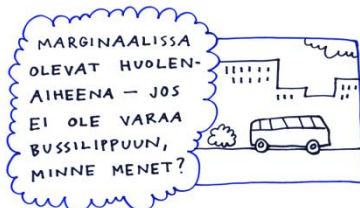 MARGINAALISSA
OLEVAT HUOLEN-
AIHEENA – JOS
EI OLE VARAA
BUSSILIPPUUN,
MINNE MENET?